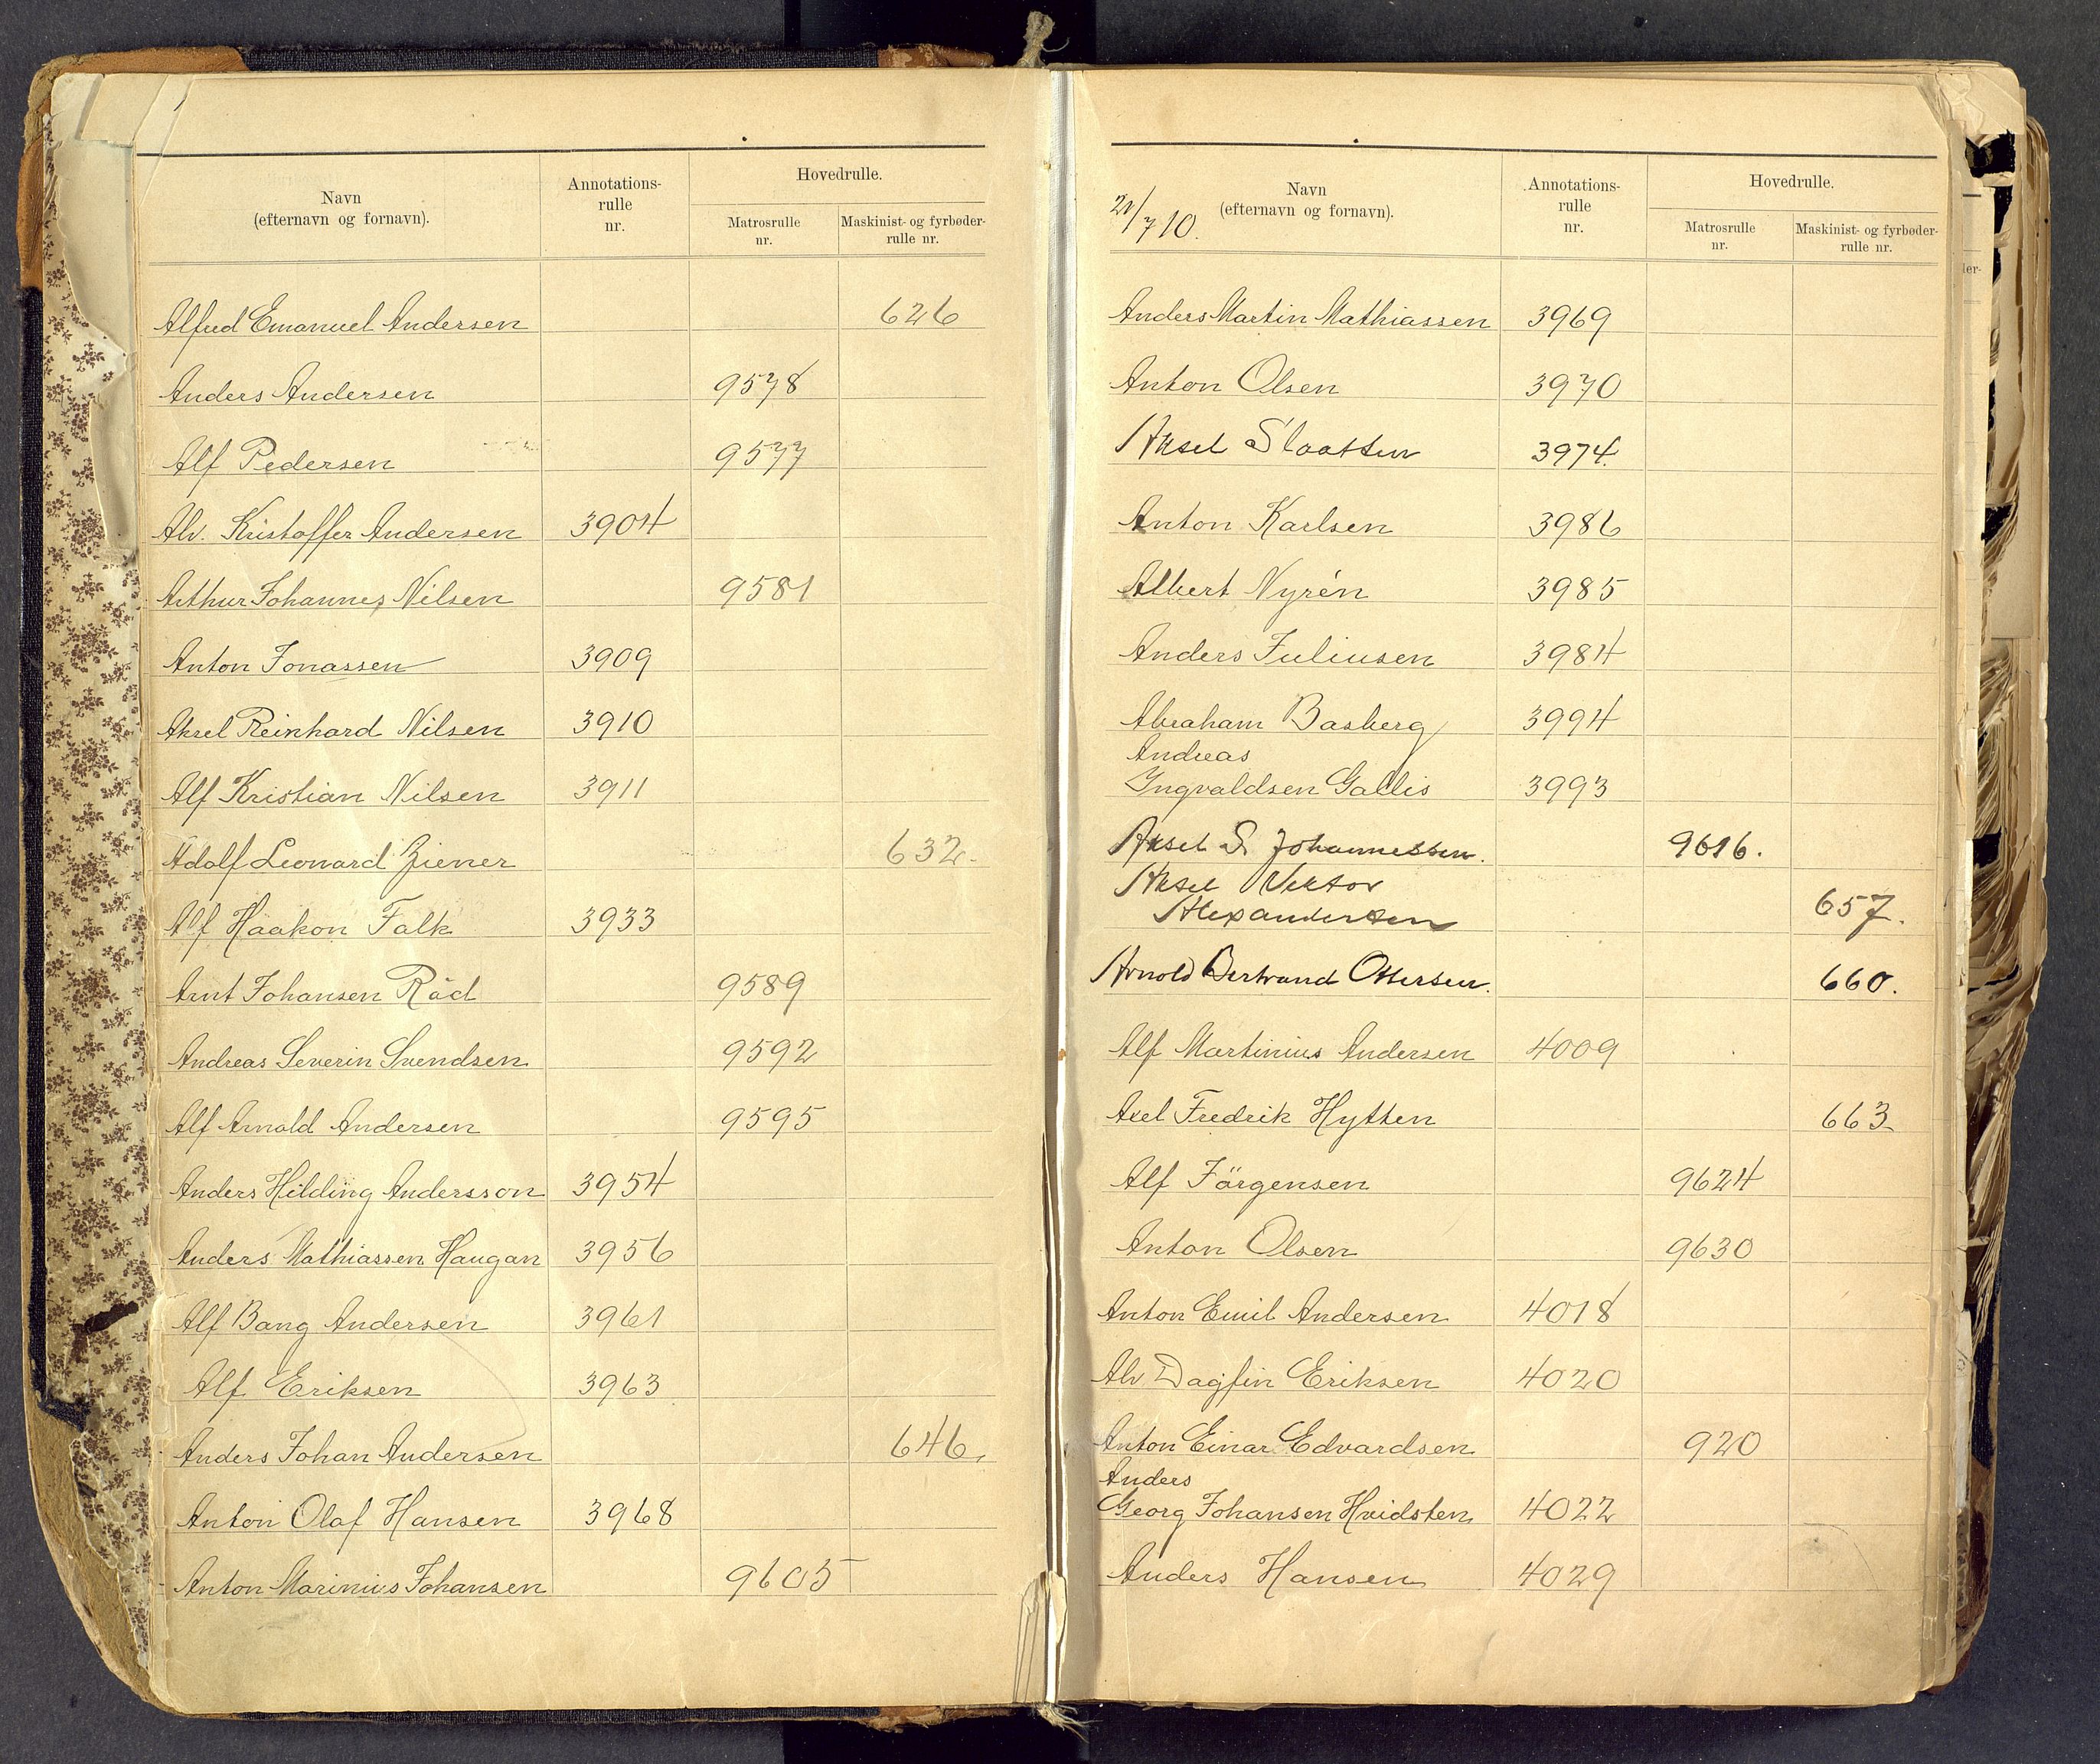 Navn
(efternavn og fornavn).
Annotations-
rulle
nr.
Hovedrulle.
Matrosrulle
nr.
Maskinist- og fyrbøder-
rulle nr.
Alfred Emanuel Andersen 626
Anders Andersen 9578
Alf Pedersen 9577
Alv. Kristoffer Andersen 3904
Arthur Johannes Nilsen 9581
Anton Jonassen 3909
Aksel Reinhard Nilsen 3910
Alf Kristian Nilsen 3911
Adolf Leonard Ziener 632.
Alf Haakon Falk 3933
Arnt Johansen Råd 9589
Andreas Severin Svendsen 9592
Alf Arnold Andersen 9595
Anders Hilding Andersson 3954
Anders Mathiassen Haugan 3956
Alf Bang Andersen 3961
Alf Eriksen 3963
Anders Johan Andersen 646.
Anton Olaf Hansen 3968
Anton Marinius Johansen 9605
21/7 10.
Navn
(efternavn og fornavn).
Annotations-
rulle
nr.
Hovedrulle.
Matrosrulle
nr.
Maskinist- og fyrbøder-
rulle nr.
Anders Martin Mathiassen 3969
Anton Olsen 3970
Aksel Slaatten 3974.
Anton Karlsen 3986
Albert Nyrén 3985
Anders Juliusen 3984
Abraham Basberg 3994
Andreas
Ingvaldsen Gallis 3993
Aksel S. Johannessen. 9616.
Aksel Viktor
Alexandersen 657.
Arnold Bertrand Ottersen. 660.
Alf Martinius Andersen 4009
Axel Fredrik Hytten 663
Alf Jörgensen 9624
Anton Olsen 9630
Anton Emil Andersen 4018
Alv Dagfin Eriksen 4020
Anton Einar Edvardsen 920
Anders
Georg Johansen Hvidsten 4022
Anders Hansen 4029